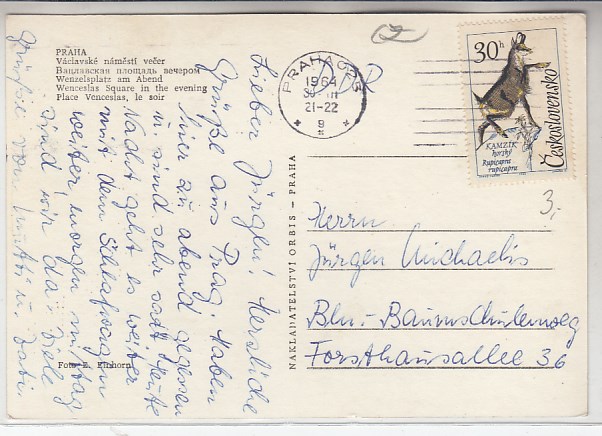 PRAHA
Václavské náměstí večer
Вацлавская площадь вечером
Wenzelsplatz am Abend
Wenceslas Square in the evening
Place Venceslas, le soir
Lieber Jürgen! Herzliche
Grüße aus Prag. Haben
hier zu abend gegessen
u. sind sehr satt. Heute
Nacht geht es weiter
mit dem Schlafwagen
weiter, morgen mittag
sind wir da. Viele
Grüße von Mutti u. Vati
Foto E. Einhorn
NAKLADATELSTVÍ ORBIS - PRAHA
PRAHA
1964
21-22
9
DDR
30h
KAMZÍK
horský
Rupicapra
rupicapra
Československo
3,-
Herrn
Jürgen Michaelis
Bln.- Baumschulenweg
Forsthausallee 36